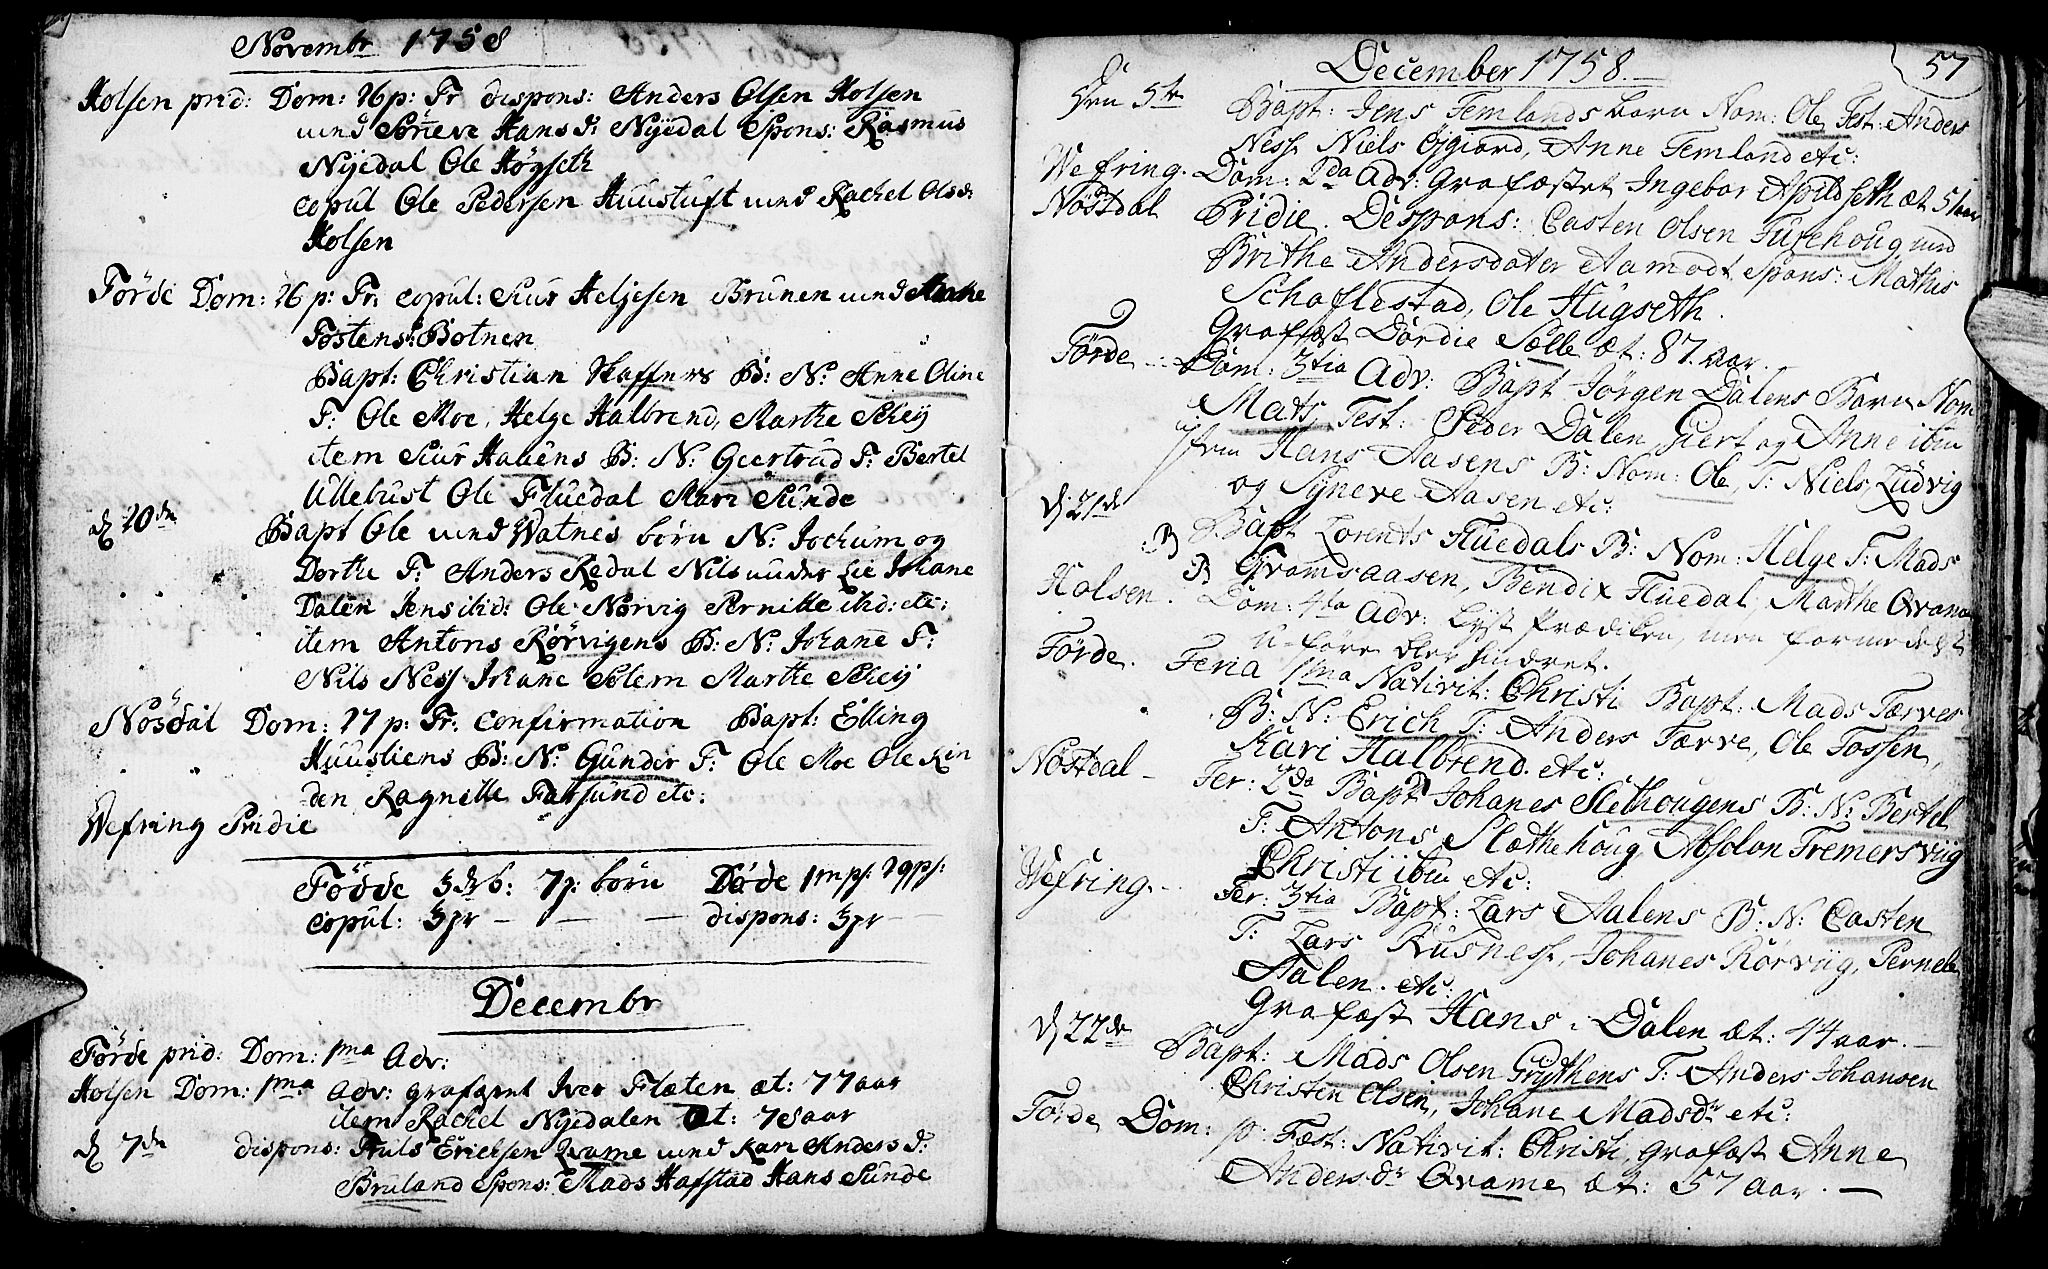 Novembr 1758
Holsen prid: Dom: 26 p: Tr dispons: Anders Olsen Holsen
med Sørieve Hans d: Nyedal Spons: Rasmus
Nyedal Ole Høgseth
copul Ole Pedersen Huustuft med Rachel Olsd:
Holsen
Førde Dom: 26 p: Tr: copul: Siur Heljesen Brunen med Marthe
Tostensd: Botnen
Bapt: Christian Skaffers B: N: Anne Oline
T: Ole Moe, Helge Halbrend, Marthe Scheij
item Siur Hauens B: N: Geertrud T: Bertel
Ullebust Ole Fluedal Mari Sunde
d 20de Bapt Ole ved Watnes børn N: Jochum og
Dorthe T: Anders Redal Nils under Lie Johane
Dalen Jens ibid: Ole Norvig Pernille ibid: etc:
item Antons Rørvigens B: N: Johane T:
Nils Ness Johane Solem Marthe Scheij
Nosdal Dom: 27 p: Tr: confirmation Bapt: Elling
Huusliens B: N: Gunder T: Ole Moe Ole Rin
den Ragnille Farsund etc:
Wefring Pridie
Fødde 3 db: 7 p: børn Døde 1 mp: 2 qp:
copul: 3 pr — — — dispons: 3 pr —
Decembr
Førde prid: Dom: 1ma Adv:
Holsen Dom: 1ma Adv: grafæst Iver Flæten æt: 77 aar
item Rachel Nyedalen æt: 78 aar
d 7de dispons: Truls Erichsen Qvame med Kari Anders d:
Bruland Spons: Mads Hafstad Hans Sunde
57
December 1758.
Den 5te Bapt: Jens Femlands barn Nom: Ole Test: Anders
Ness Niels Giord, Anne Femland etc:
Wefring. Dom: 2da Adv: Grafæstet Ingebor Apildseth æt 51 aar
Nøstdal Pridie. Despons: Casten Olsen Furehoug med
Brithe Andersdater Aamodt Spons: Mathis
Schaflestad, Ole Hugseth.
Grafæst Dordie Sølle æt: 87 aar.
Førde Dom: 3tia Adv: Bapt Jørgen Dalens Barn Nom
Mats Test: Peder Dalen, Giert og Anne ibm
item Hans Aasens B: Nom: Ole, T: Niels, Ludvig
og Syneve Aasen etc:
d 21de Bapt Lorents Fluedals B: Nom: Helge T: Mads
Gramsaasen, Bendix Fluedal, Marthe Qvame
Holsen. Dom: 4ta Adv: lyst Prædiken, men formedelst
u-føre blev hindret.
Førde. Feria 1ma Nativit: Christi Bapt: Mads Færves
B: N: Erich T: Anders Færve, Ole Fossen,
Kari Halbrend. etc:
Nøstdal — Fer: 2da Bapt Johanes Slethougens B: N: Bertel
T: Antons Slæthehoug, Absolon Fremersviig
Christi ibm etc:
Wefring. — Fer: 3tia Bapt: Lars Aalens B: N: Casten
T: Lars Kusness, Johanes Rørviig, Pernele
Aalen. etc:
Grafæst Hans i Dalen æt: 44 aar. —
d 22de Bapt: Mads Olsen Grythens T: Anders Johansen
Christen Olsen, Johane Madsdr etc:
Førde Dom: p: Fæst: Nativit: Christi, grafæst Anne
Andersdr Qvame æt: 57 aar. —